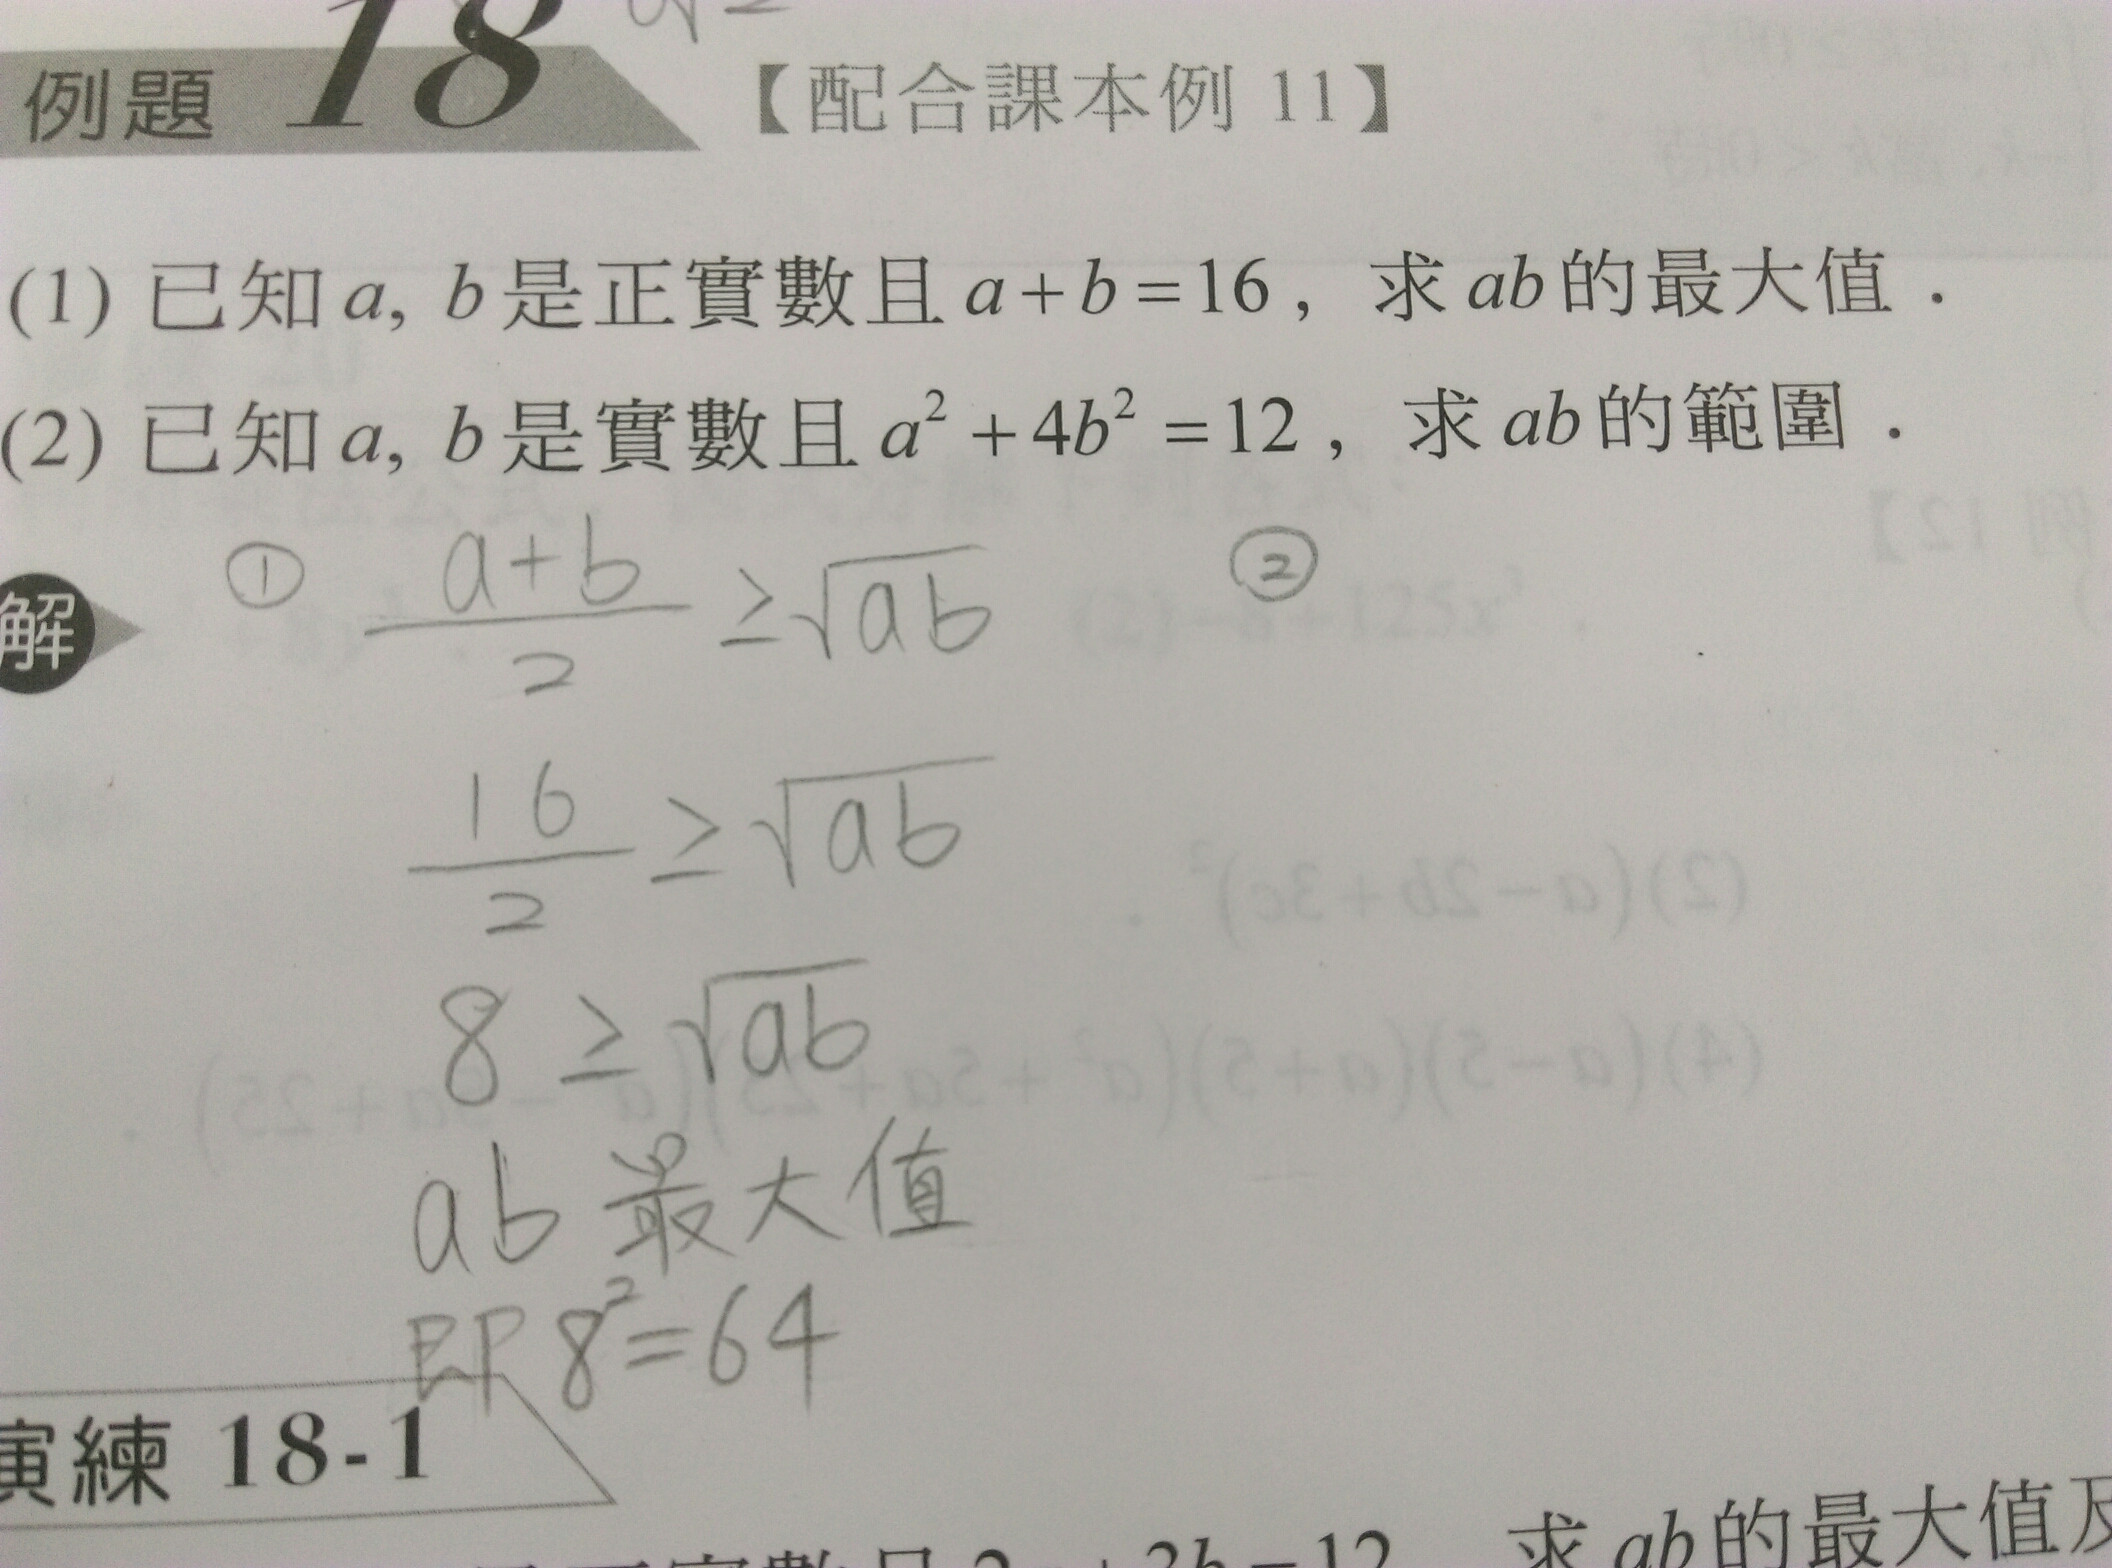 例題 18 【配合課本例 11】
(1) 已知 a, b 是正實數且 a + b = 16，求 ab 的最大值．
(2) 已知 a, b 是實數且 a² + 4b² = 12，求 ab 的範圍．
解 ① (a+b)/2 ≥ √ab ②
16/2 ≥ √ab
8 ≥ √ab
ab 最大值
即 8² = 64
演練 18-1
求 ab 的最大值及